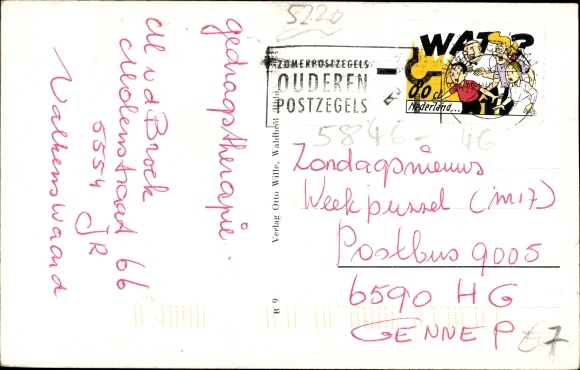 5220
gedragstherapie.
M v d Brock
Molenstraat 66
5554 JR
Valkenswaard
ZOMERPOSTZEGELS
OUDEREN
POSTZEGELS
WAT?
Nederland...
5846-46
Zondagsnieuws
Weekpuzzel (m17)
Postbus 9005
6590 HG
GENNEP
€7
Verlag Otto Wille, Waldbröl
R 9